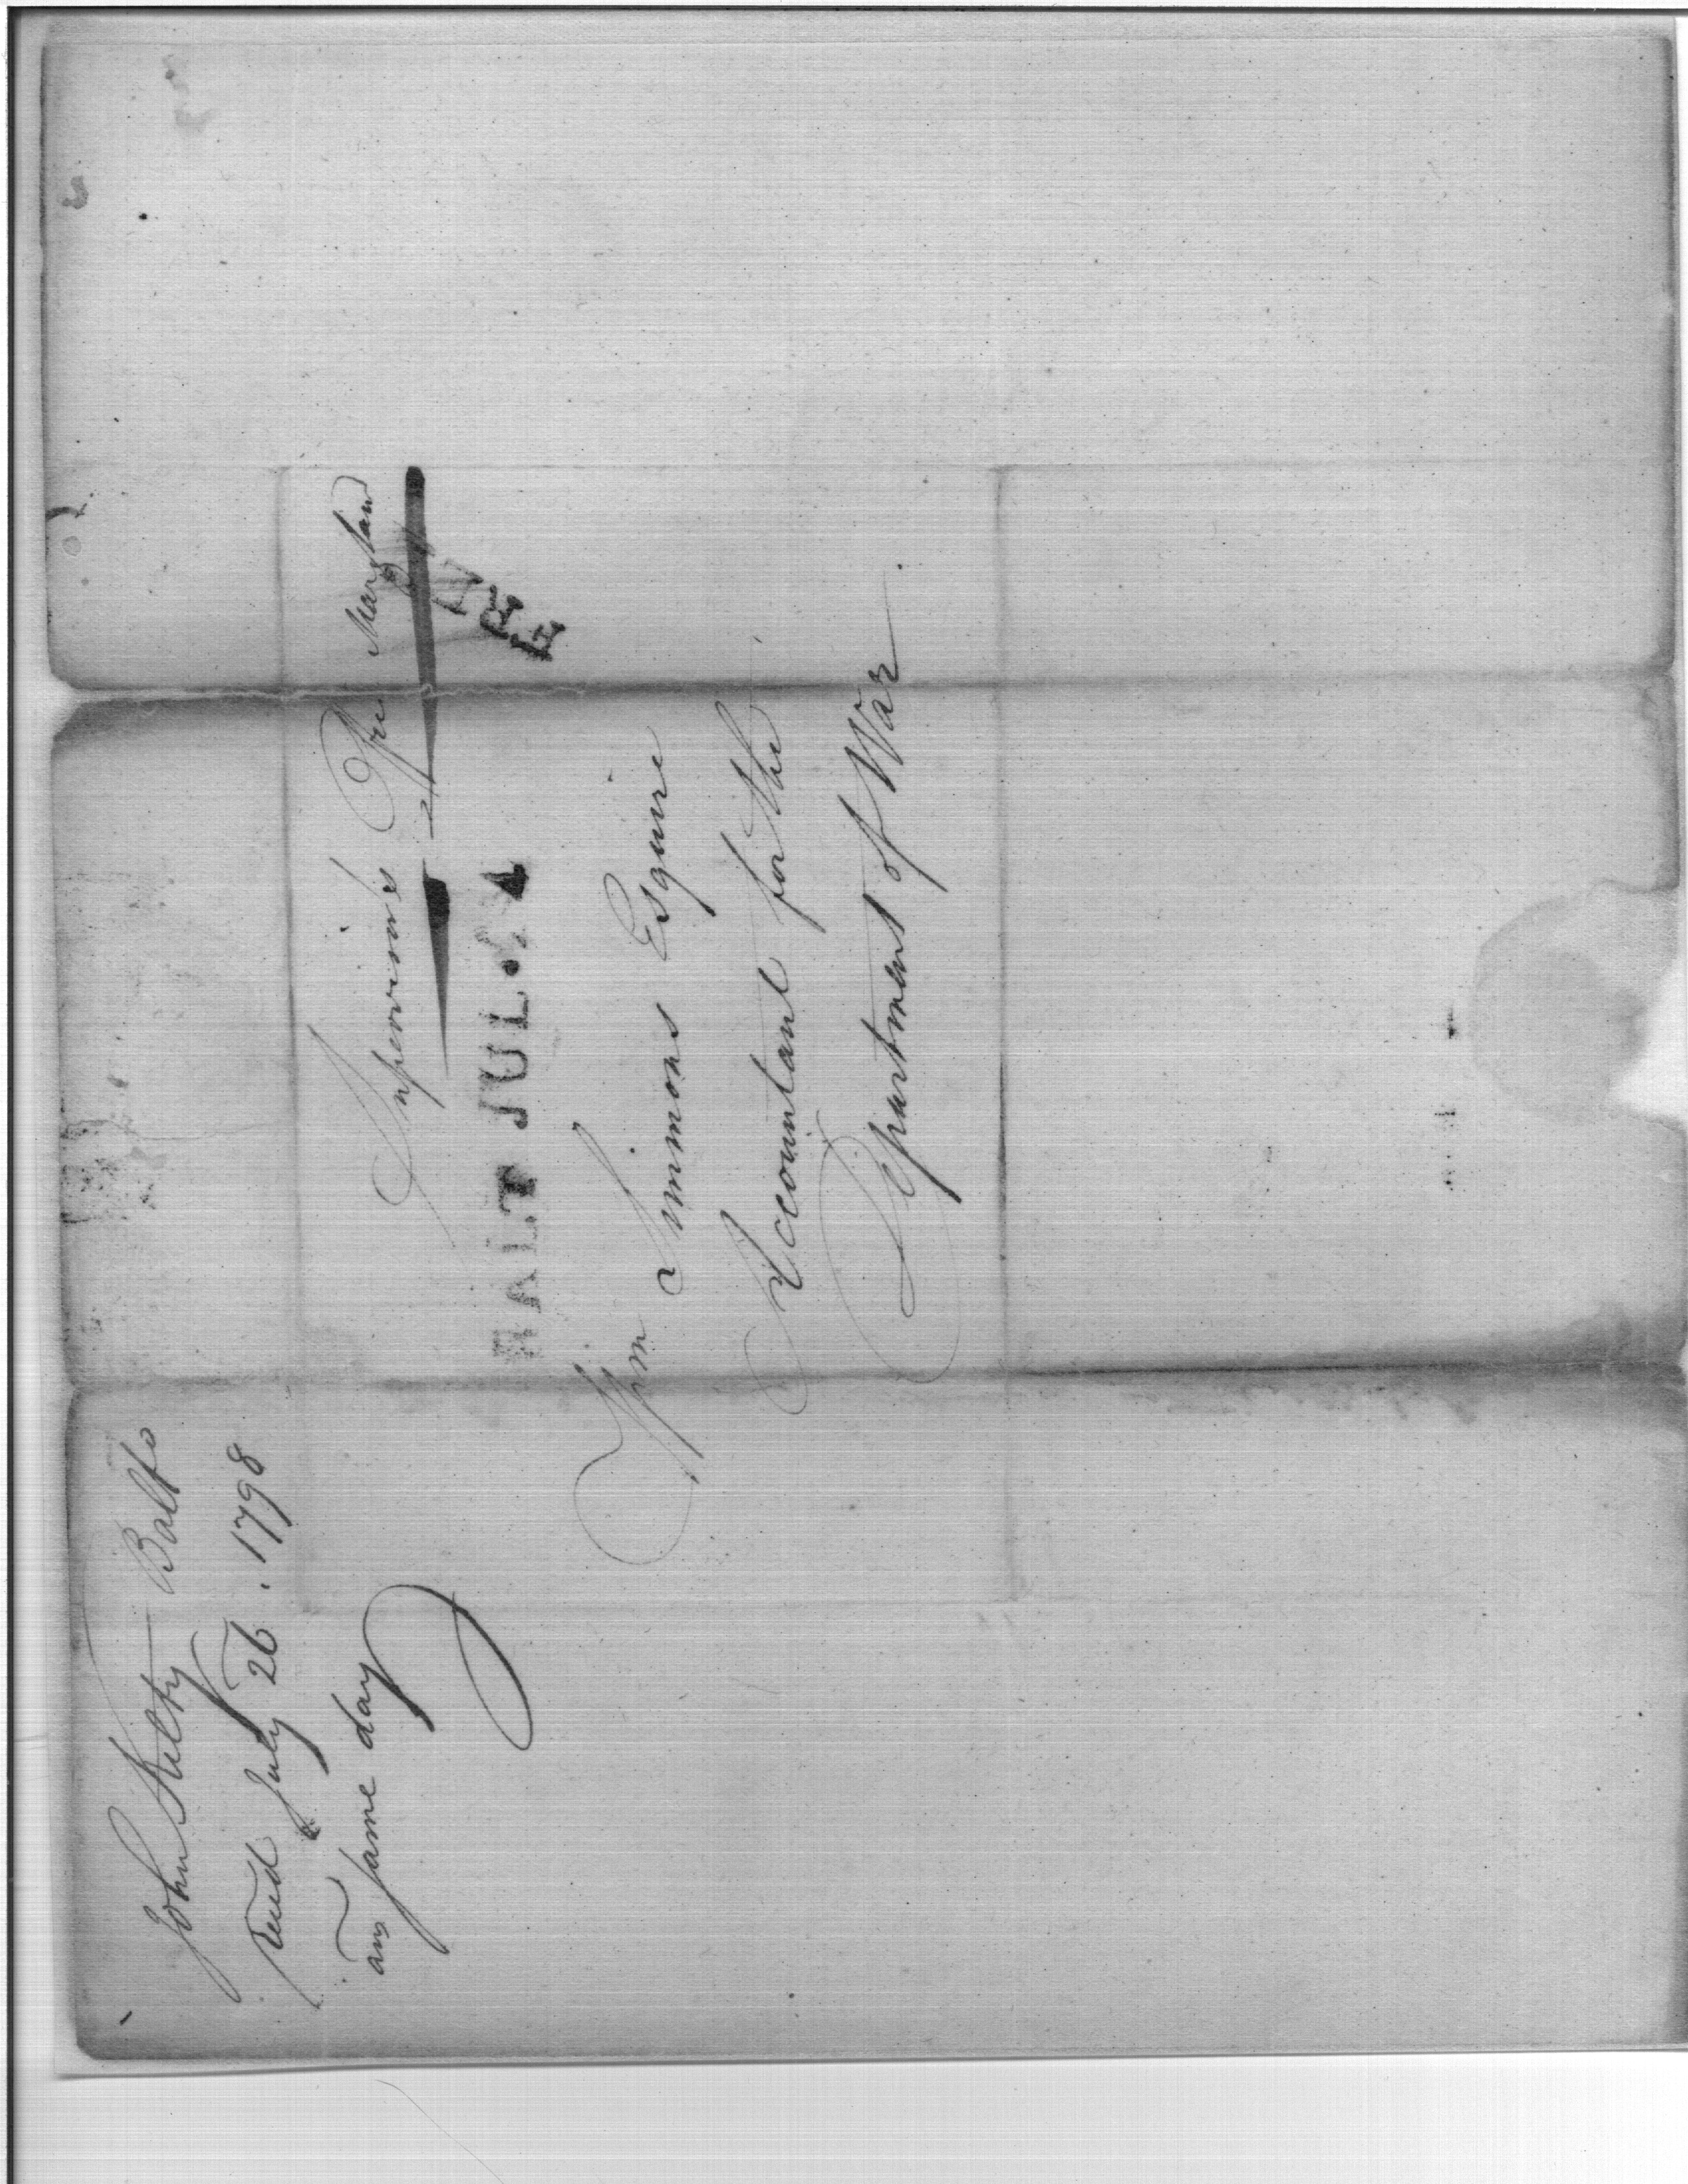 John Kilty Balto
Recd July 26. 1798
ans same day
Supervisor's Office Maryland
FRE
BALT JUL
Wm Simmons Esquire
Accountant for the
Department of War